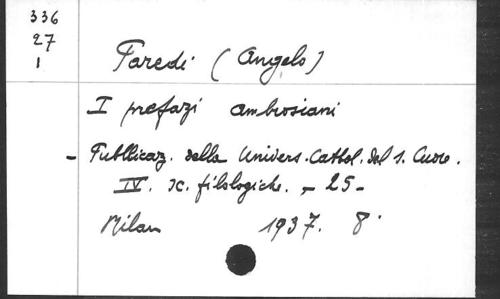 336
27
1
Paredi (Angelo)
I prefazi ambrosiani
- Pubblicaz. della Univers. Cattol. del s. Cuore.
IV. sc. filologiche. - 25 -
Milan 1937. 8°